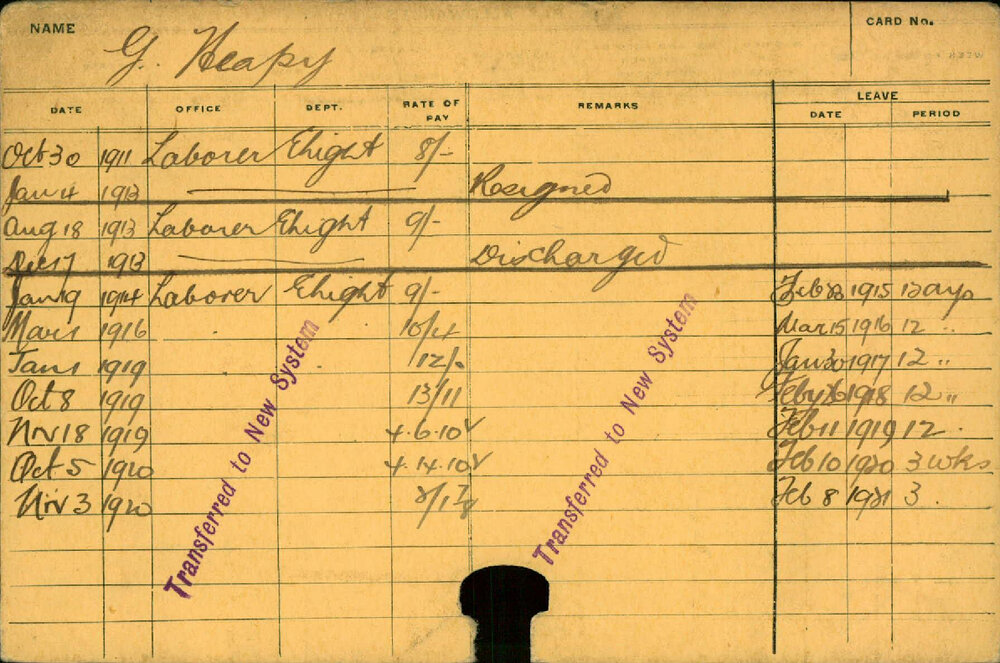 NAME G. Heapy CARD No.
LEAVE
DATE OFFICE DEPT. RATE OF PAY REMARKS DATE PERIOD
Oct 30 1911 Laborer Ehight 8/-
Jan 4 1913 Resigned
Aug 18 1913 Laborer Ehight 9/-
Dec 17 1913 Discharged
Jan 19 1914 Laborer Ehight 9/- Feb 1915 12 days
Mar 1 1916 10/4 Mar 15 1916 12 "
Jan 1 1919 12/- Jan 30 1917 12 "
Oct 8 1919 13/11 Feby 1918 12 "
Nov 18 1919 4.6.10 Feb 11 1919 12 "
Oct 5 1920 4.14.10 Feb 10 1920 3 wks
Nov 3 1920 Feb 8 1921 3 "
Transferred to New System
Transferred to New System